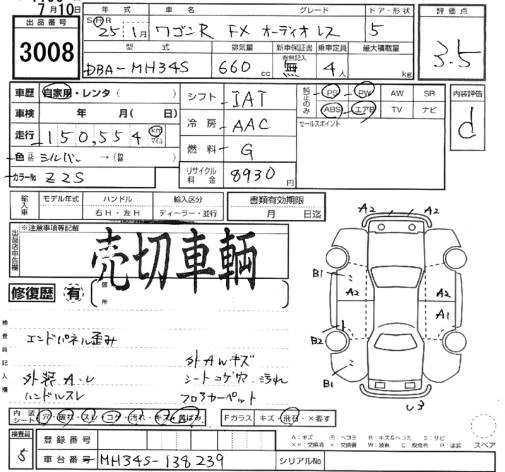 7月10日
出品番号
3008
年式 車名 グレード ドア・形状 評価点
25年1月 ワゴンR FX オーディオレス 5 3.5
型式 排気量 新車保証書 乗車定員 最大積載量
DBA-MH34S 660cc 無 4人 kg
車歴 自家用・レンタ( ) シフト IAT
車検 年 月(日) 冷房 AAC
走行 150,554 km 燃料 G
色 シルバー→( ) リサイクル料金 8930円
カラーNo Z2S
純正のみ PS PW AW SR
ABS エアB TV ナビ
セールスポイント
内装評価
d
輸入車 モデル年式 ハンドル 右H・左H 輸入区分 ディーラー・並行 書類有効期限 月 日迄
※注意事項等記載
出品店申告欄
売切車輌
修復歴 有 箇所
検査員記入欄
エンドパネル歪み
外装A.U
ハンドルスレ
外AWキズ
シートコゲ穴・汚れ
フロアカーペット
A2 A2
B1
A2 A2 A1
B2 B2
B1
U3
内装シート 穴・破れ・スレ・コゲ・汚れ・キズ・黄ばみ Fガラス キズ・飛石・×要す
検査員 5
登録番号
車台番号 MH34S-138239 シリアルNo
A：キズ
スペア